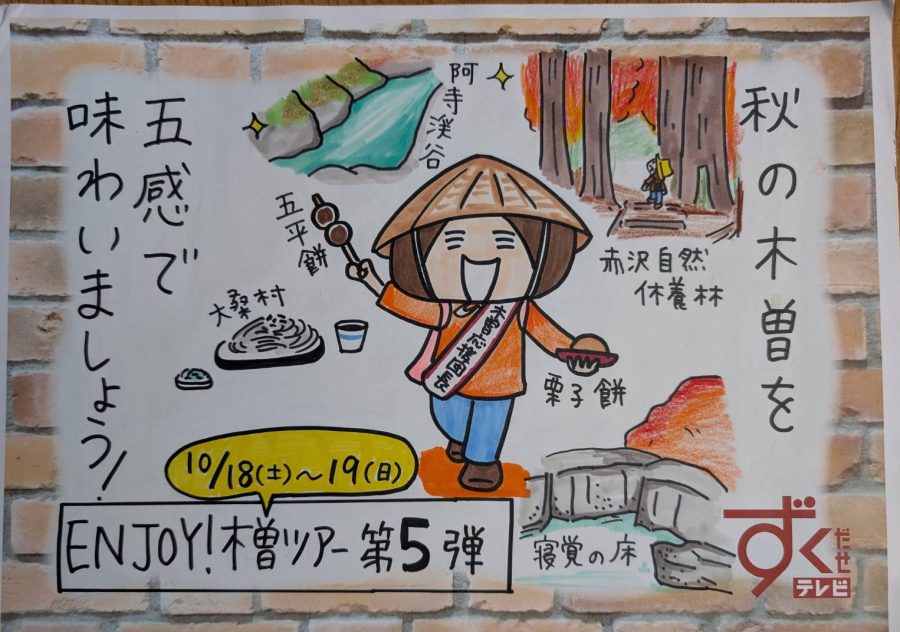 秋の木曽を
五感で
味わいましょう!
阿寺渓谷
赤沢自然
休養林
五平餅
大桑村
木曽応援団長
栗子餅
寝覚の床
10/18(土)〜19(日)
ENJOY!木曽ツアー第5弾
ずくだせ
テレビ